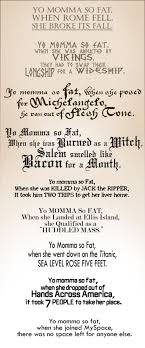 YO MOMMA SO FAT,
WHEN ROME FELL,
SHE BROKE ITS FALL.
YO MOMMA SO FAT,
WHEN SHE WAS ABDUCTED BY
VIKINGS,
THEY HAD TO SWAP THEIR
LONGSHIP FOR A WIDESHIP.
Yo momma so fat, when she posed
for Michelangelo,
he ran out of Flesh Tone.
Yo Momma so Fat,
When she was Burned as a Witch,
Salem smelled like
Bacon for a Month.
Yo momma so Fat,
When she was KILLED BY JACK THE RIPPER,
It took him TWO TRIPS to get her liver home.
Yo Momma So Fat,
When she Landed at Ellis Island,
she Qualified as a
"HUDDLED MASS."
Yo Momma so Fat,
when she went down on the Titanic,
SEA LEVEL ROSE FIVE FEET.
Yo momma so fat,
when she dropped out of
Hands Across America,
it took 7 PEOPLE to take her place.
Yo momma so fat,
when she joined MySpace,
there was no space left for anyone else.